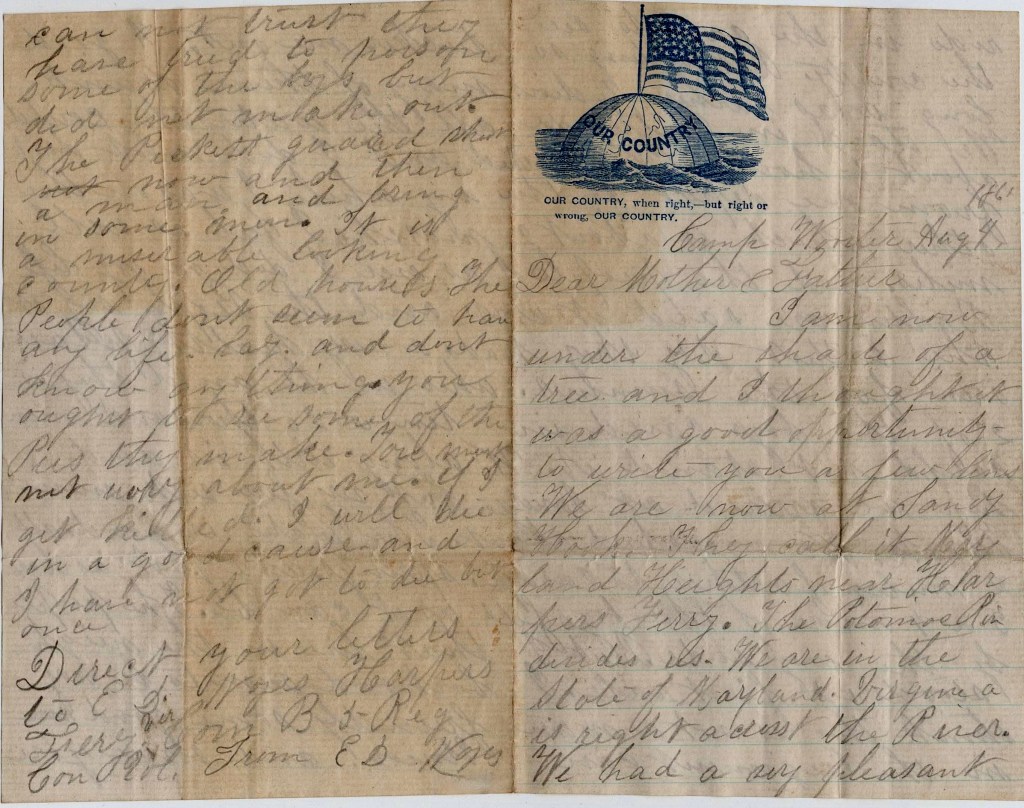 OUR COUNTRY
OUR COUNTRY, when right,—but right or
wrong, OUR COUNTRY.
1861
Camp Aug 4
Dear Mother & Father
I am now
under the shade of a
tree and I thought it
was a good opportunity
to write you a few lines
We are now at Sandy
Hook. They call it Mary
land Heights near Har
pers Ferry. The Potomac Riv
divides us. We are in the
State of Maryland. Virginia
is right acrost the River.
We had a very pleasant
can not trust they
have tried to poison
some of the boys but
did not make out.
The Pickett guard shoot
now and then
a man and bring
in some men. It is
a miserable looking
country. Old houses The
People dont seem to have
any life. Lazy. and dont
know anything. you
ought to see some of the
Pies they make. You must
not wory about me. if I
get killed. I will die
in a good cause and
I have not got to die but
once
Direct your letters
to E D Harpers
Ferry Com B 5 Reg
Con Vol. From E D